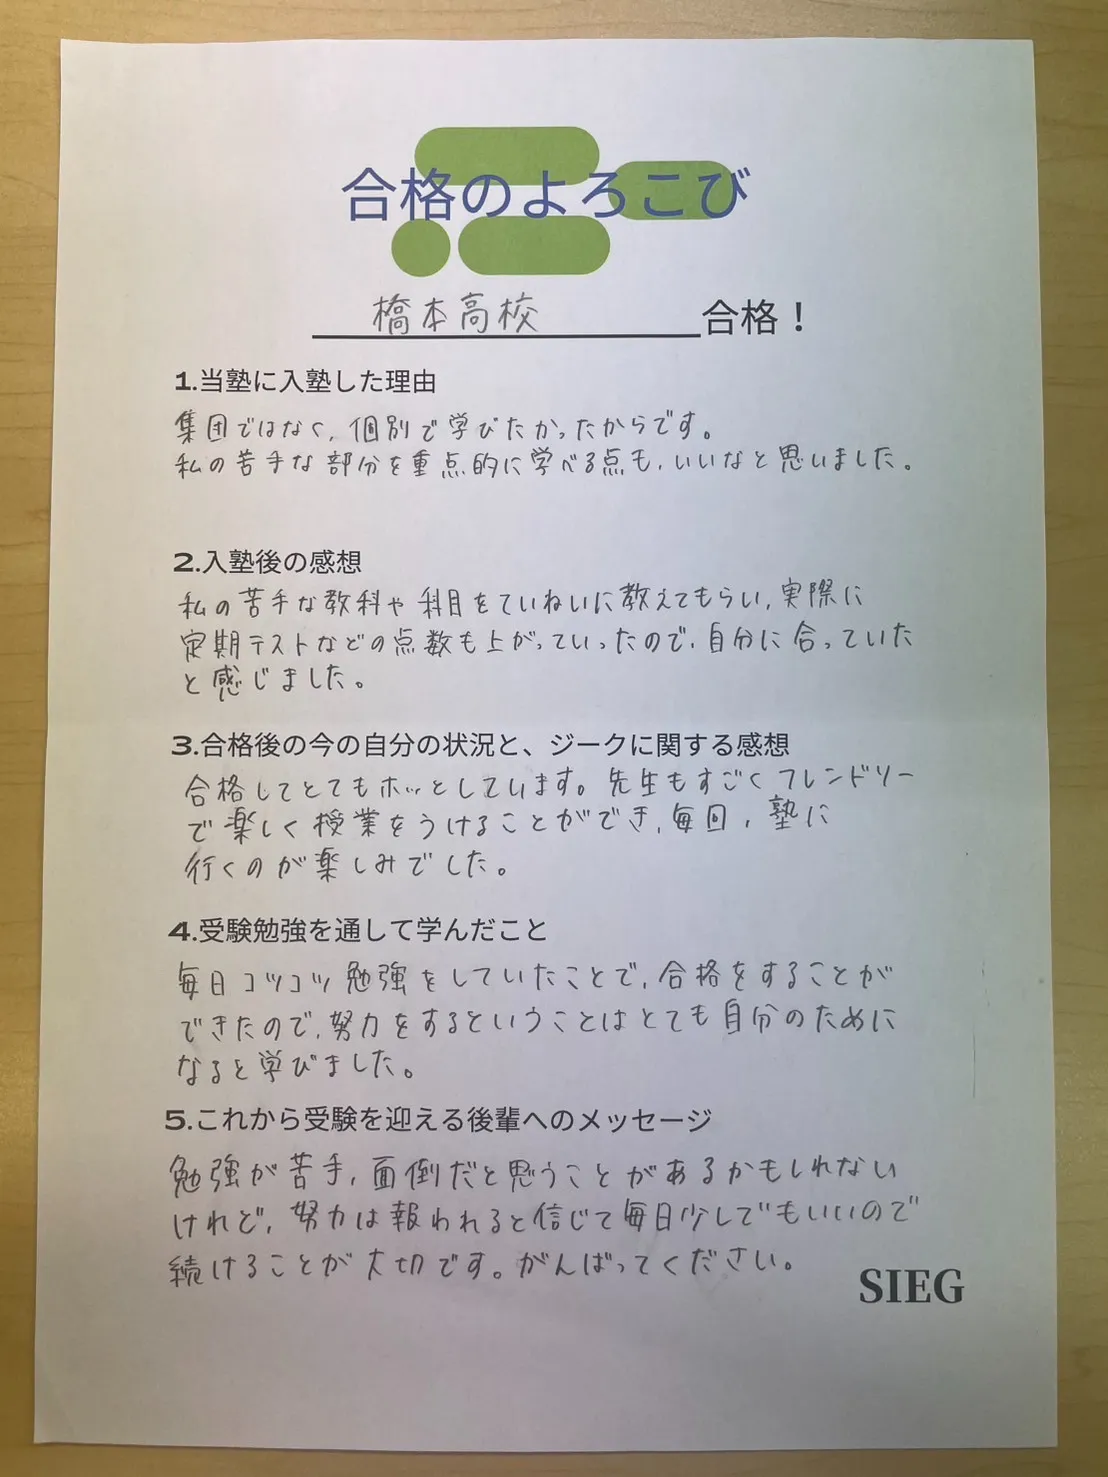 合格のよろこび
橋本高校 合格！
1.当塾に入塾した理由
集団ではなく、個別で学びたかったからです。
私の苦手な部分を重点的に学べる点も、いいなと思いました。
2.入塾後の感想
私の苦手な教科や科目をていねいに教えてもらい、実際に
定期テストなどの点数も上がっていったので、自分に合っていた
と感じました。
3.合格後の今の自分の状況と、ジークに関する感想
合格してとてもホッとしています。先生もすごくフレンドリー
で楽しく授業をうけることができ、毎回、塾に
行くのが楽しみでした。
4.受験勉強を通して学んだこと
毎日コツコツ勉強をしていたことで、合格をすることが
できたので、努力をするということはとても自分のために
なると学びました。
5.これから受験を迎える後輩へのメッセージ
勉強が苦手、面倒だと思うことがあるかもしれない
けれど、努力は報われると信じて毎日少しでもいいので
続けることが大切です。がんばってください。
SIEG